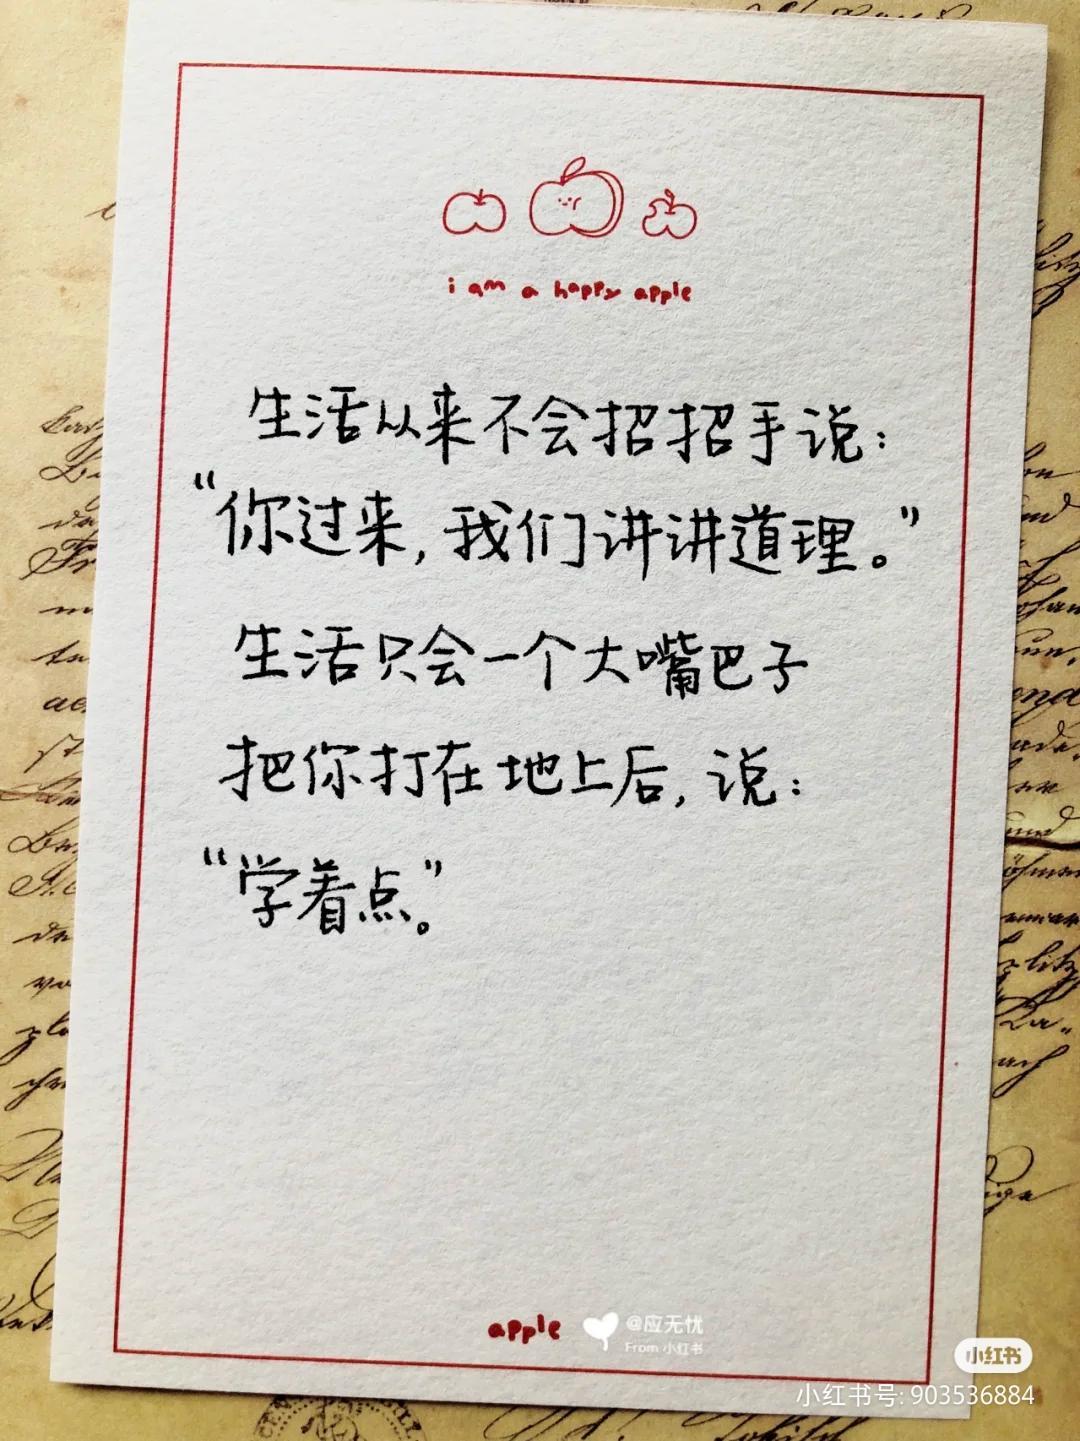 i am a happy apple
生活从来不会招招手说：
“你过来，我们讲讲道理。”
生活只会一个大嘴巴子
把你打在地上后，说：
“学着点”。
apple
@应无忧
From 小红书
小红书
小红书号: 903536884